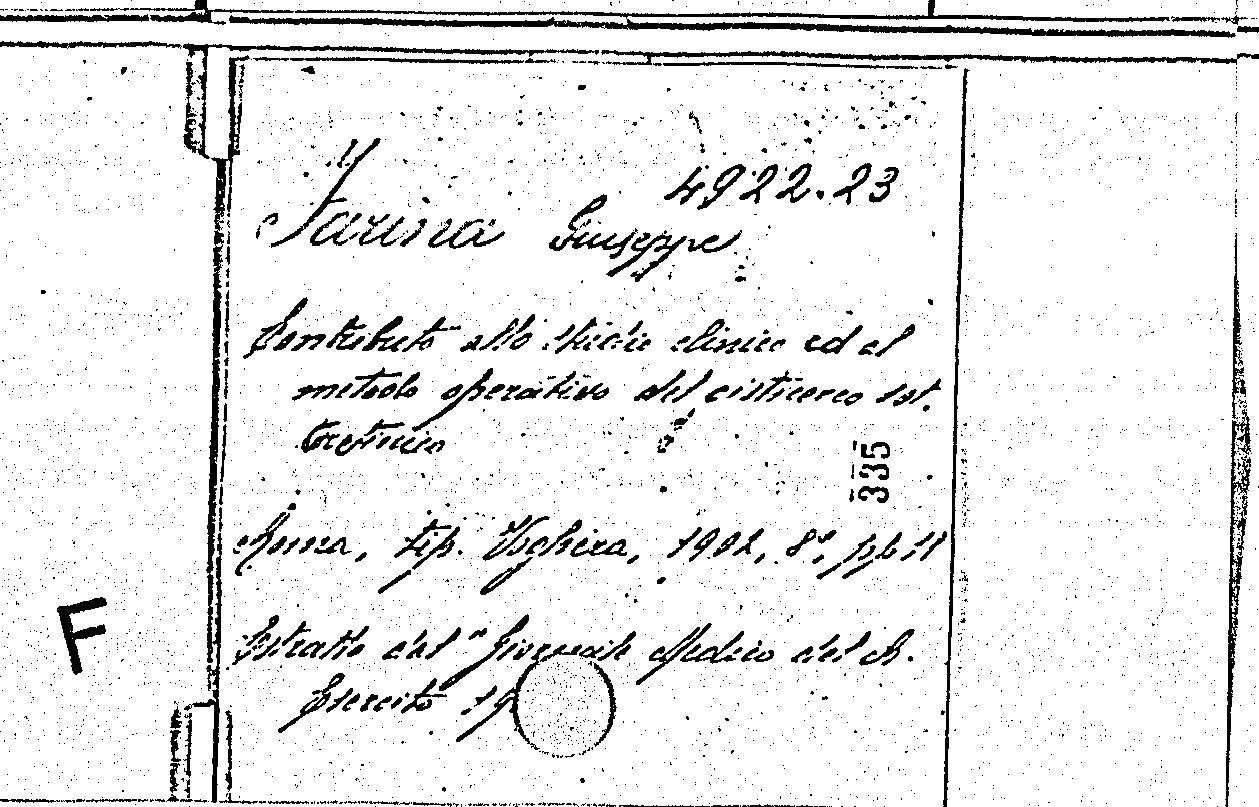 4922.23
Farina Giuseppe
Contributo allo studio clinico ed al
metodo operativo del cisticerco sot.
toretinico
335
Roma, tip. Voghera, 1902, 8°, pp 11
Estratto dal "Giornale Medico del R.
Esercito 19
F